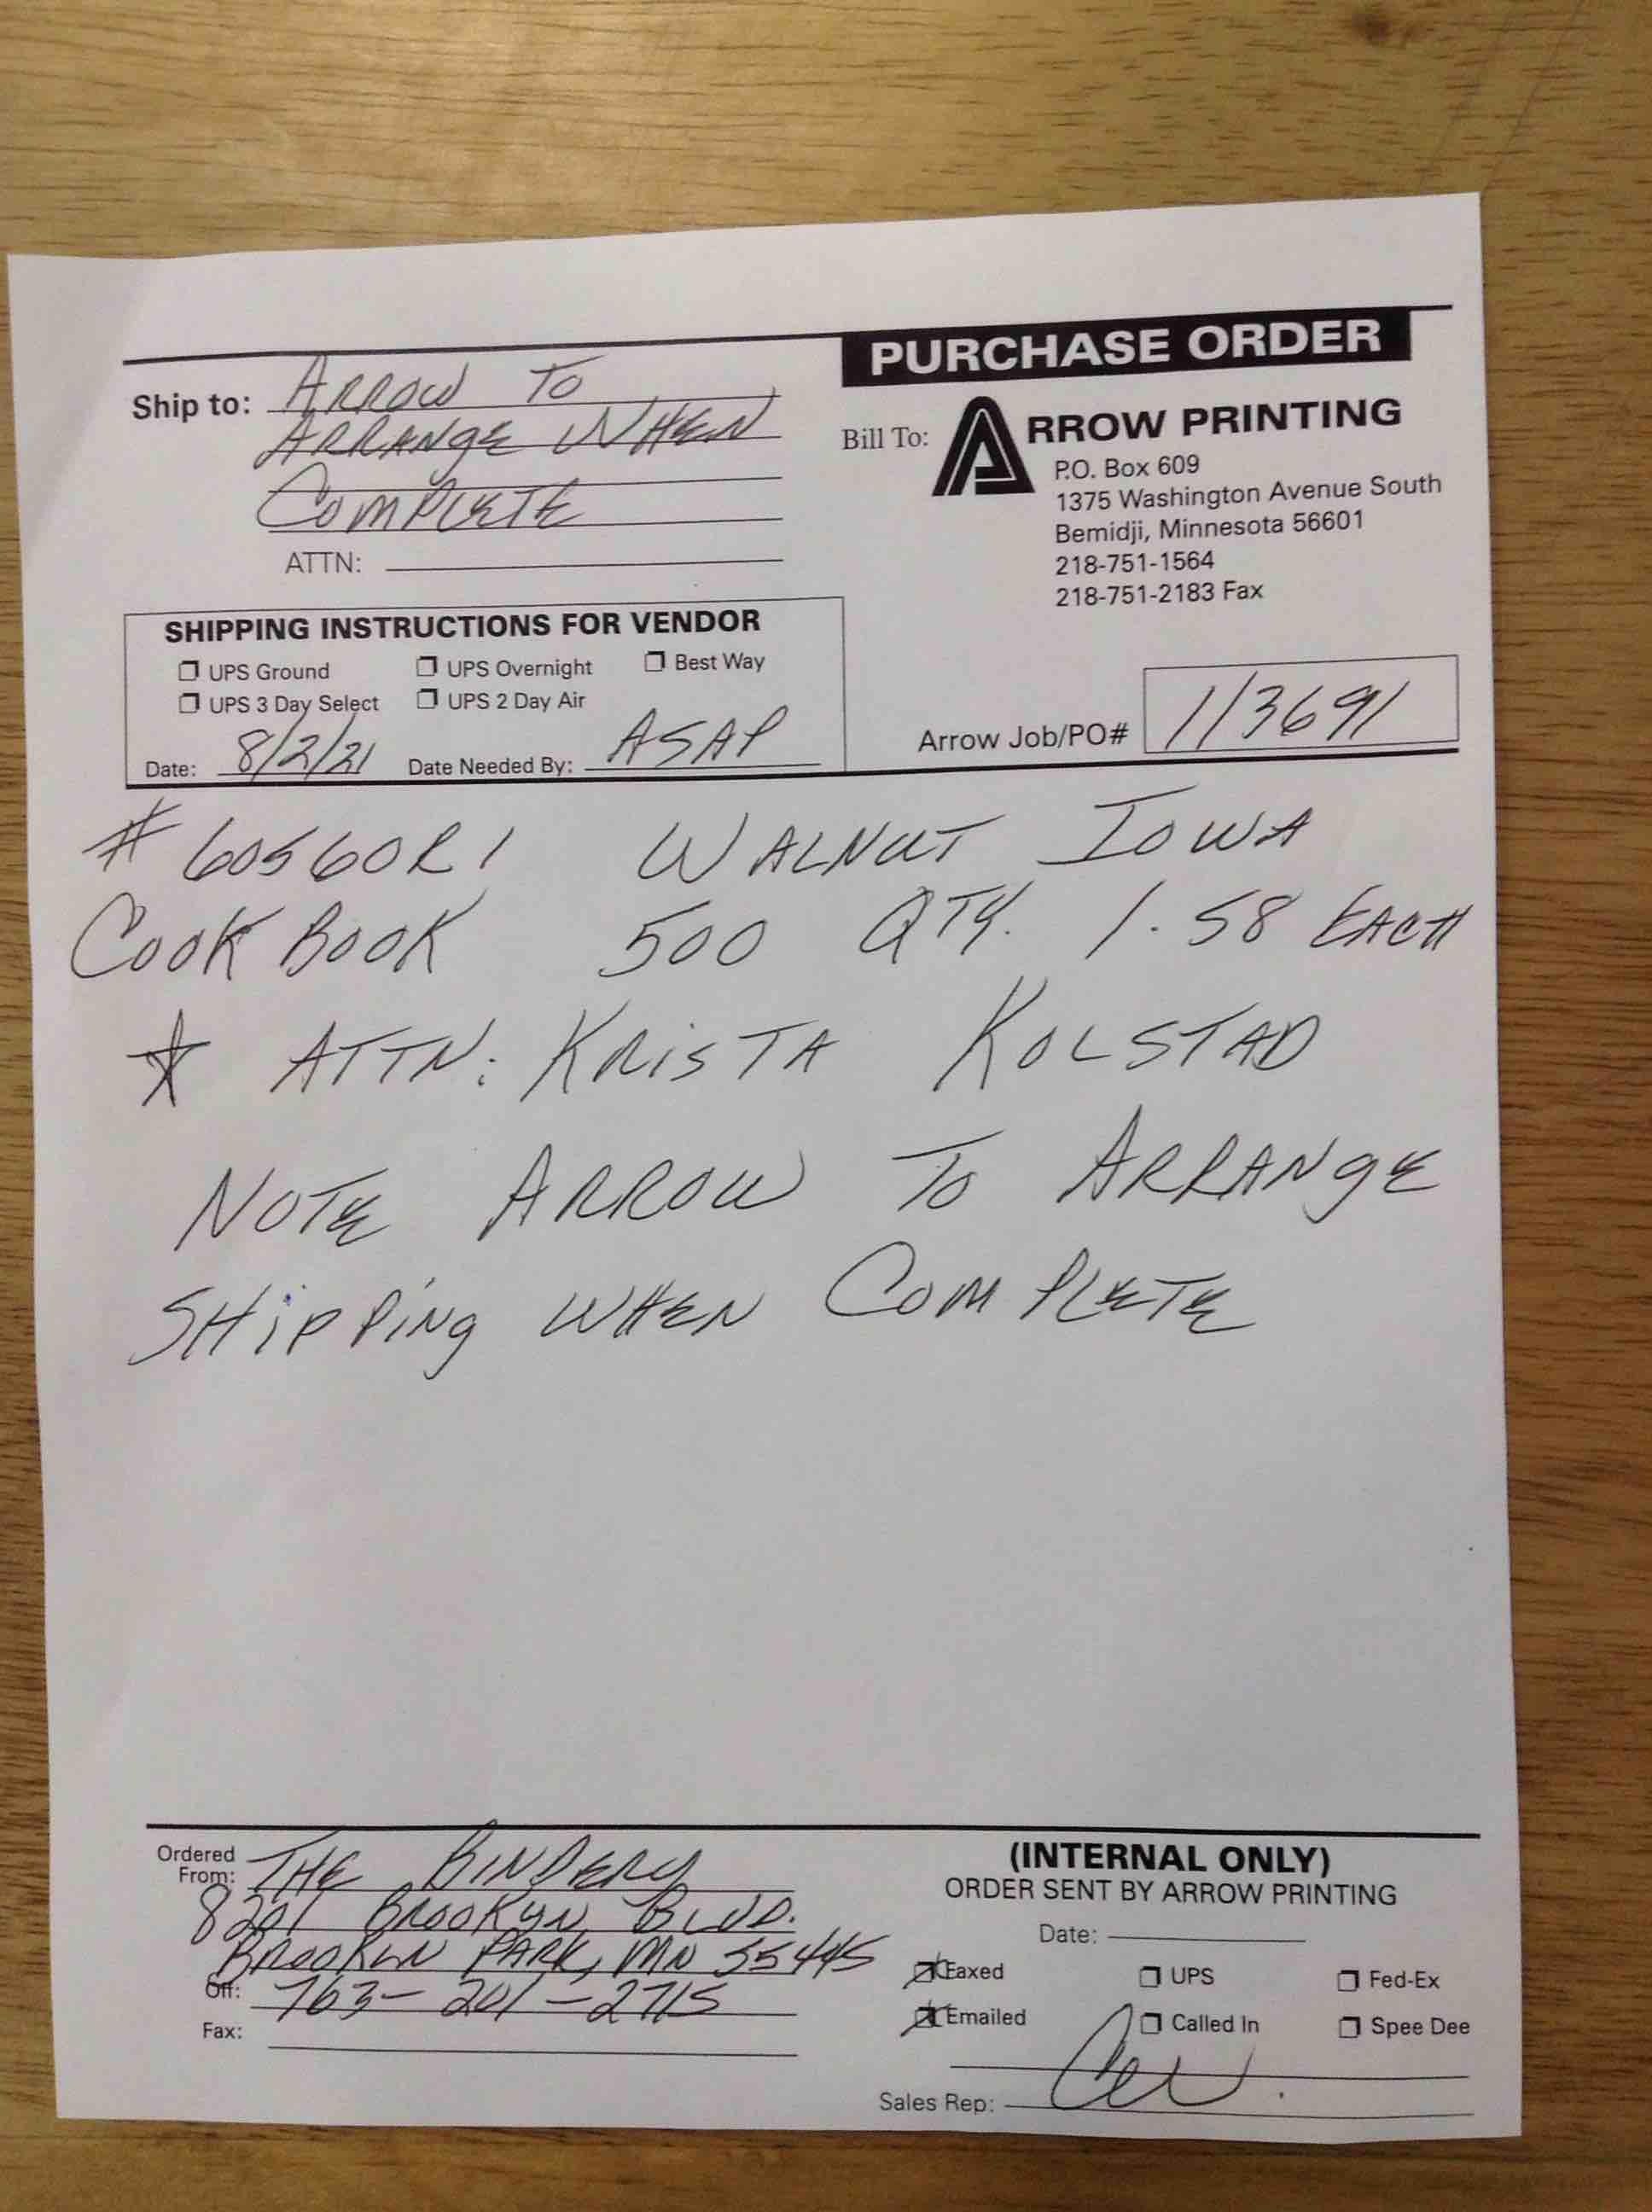 PURCHASE ORDER
Ship to: ARROW TO
ARRANGE WHEN
COMPLETE
ATTN:
Bill To: ARROW PRINTING
P.O. Box 609
1375 Washington Avenue South
Bemidji, Minnesota 56601
218-751-1564
218-751-2183 Fax
SHIPPING INSTRUCTIONS FOR VENDOR
UPS Ground UPS Overnight Best Way
UPS 3 Day Select UPS 2 Day Air
Date: 8/2/21 Date Needed By: ASAP
Arrow Job/PO# 113691
# 60560R1 WALNUT IOWA
COOK BOOK 500 QTY. 1.58 EACH
* ATTN: KRISTA KOLSTAD
NOTE ARROW TO ARRANGE
SHIPPING WHEN COMPLETE
Ordered
From: THE BINDERY
8201 BROOKYN BLVD.
BROOKLN PARK, MN 55445
Off: 763-201-2715
Fax:
(INTERNAL ONLY)
ORDER SENT BY ARROW PRINTING
Date:
Faxed UPS Fed-Ex
Emailed Called In Spee Dee
Sales Rep: